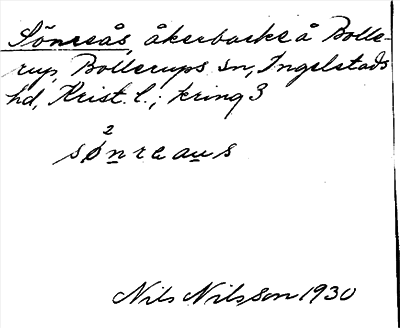 Sönreås, åkerbacke å Bolle-
rup, Bollerups sn, Ingelstads
hd, Krist. l.; kring 3
2
sønreaus
Nils Nilsson 1930